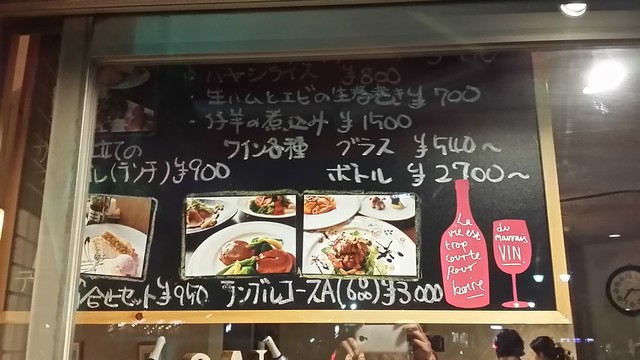 ・ハヤシライス ¥800
・生ハムとエビの生春巻き ¥700
・仔羊の煮込み ¥1500
立ての ワイン各種 グラス ¥540~
(ランチ)¥900 ボトル ¥2700~
La
vie est
trop
courte
pour
boire
du
mauvais
VIN
合せセット¥950 ランブルコースA(6品)¥3.000